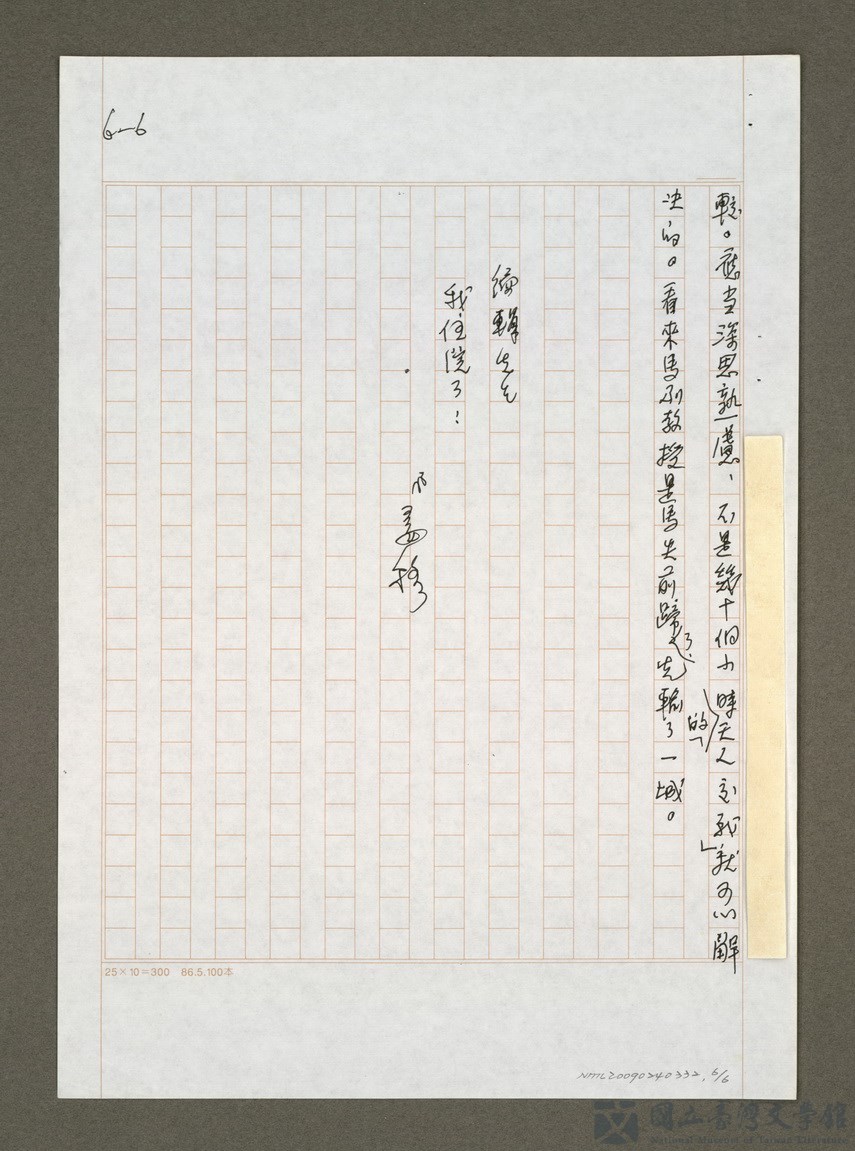 6—6
輕。應当深思熟慮，不是幾十個小時的「天人交戰」就可以解
决的。看來馬 教授是馬失前蹄了，先輸了一城。
編輯先生
我住院了！
姜穆
25×10=300 86.5.100本
NMTL20090240332, 6/6
國立臺灣文學館
National Museum of Taiwan Literature